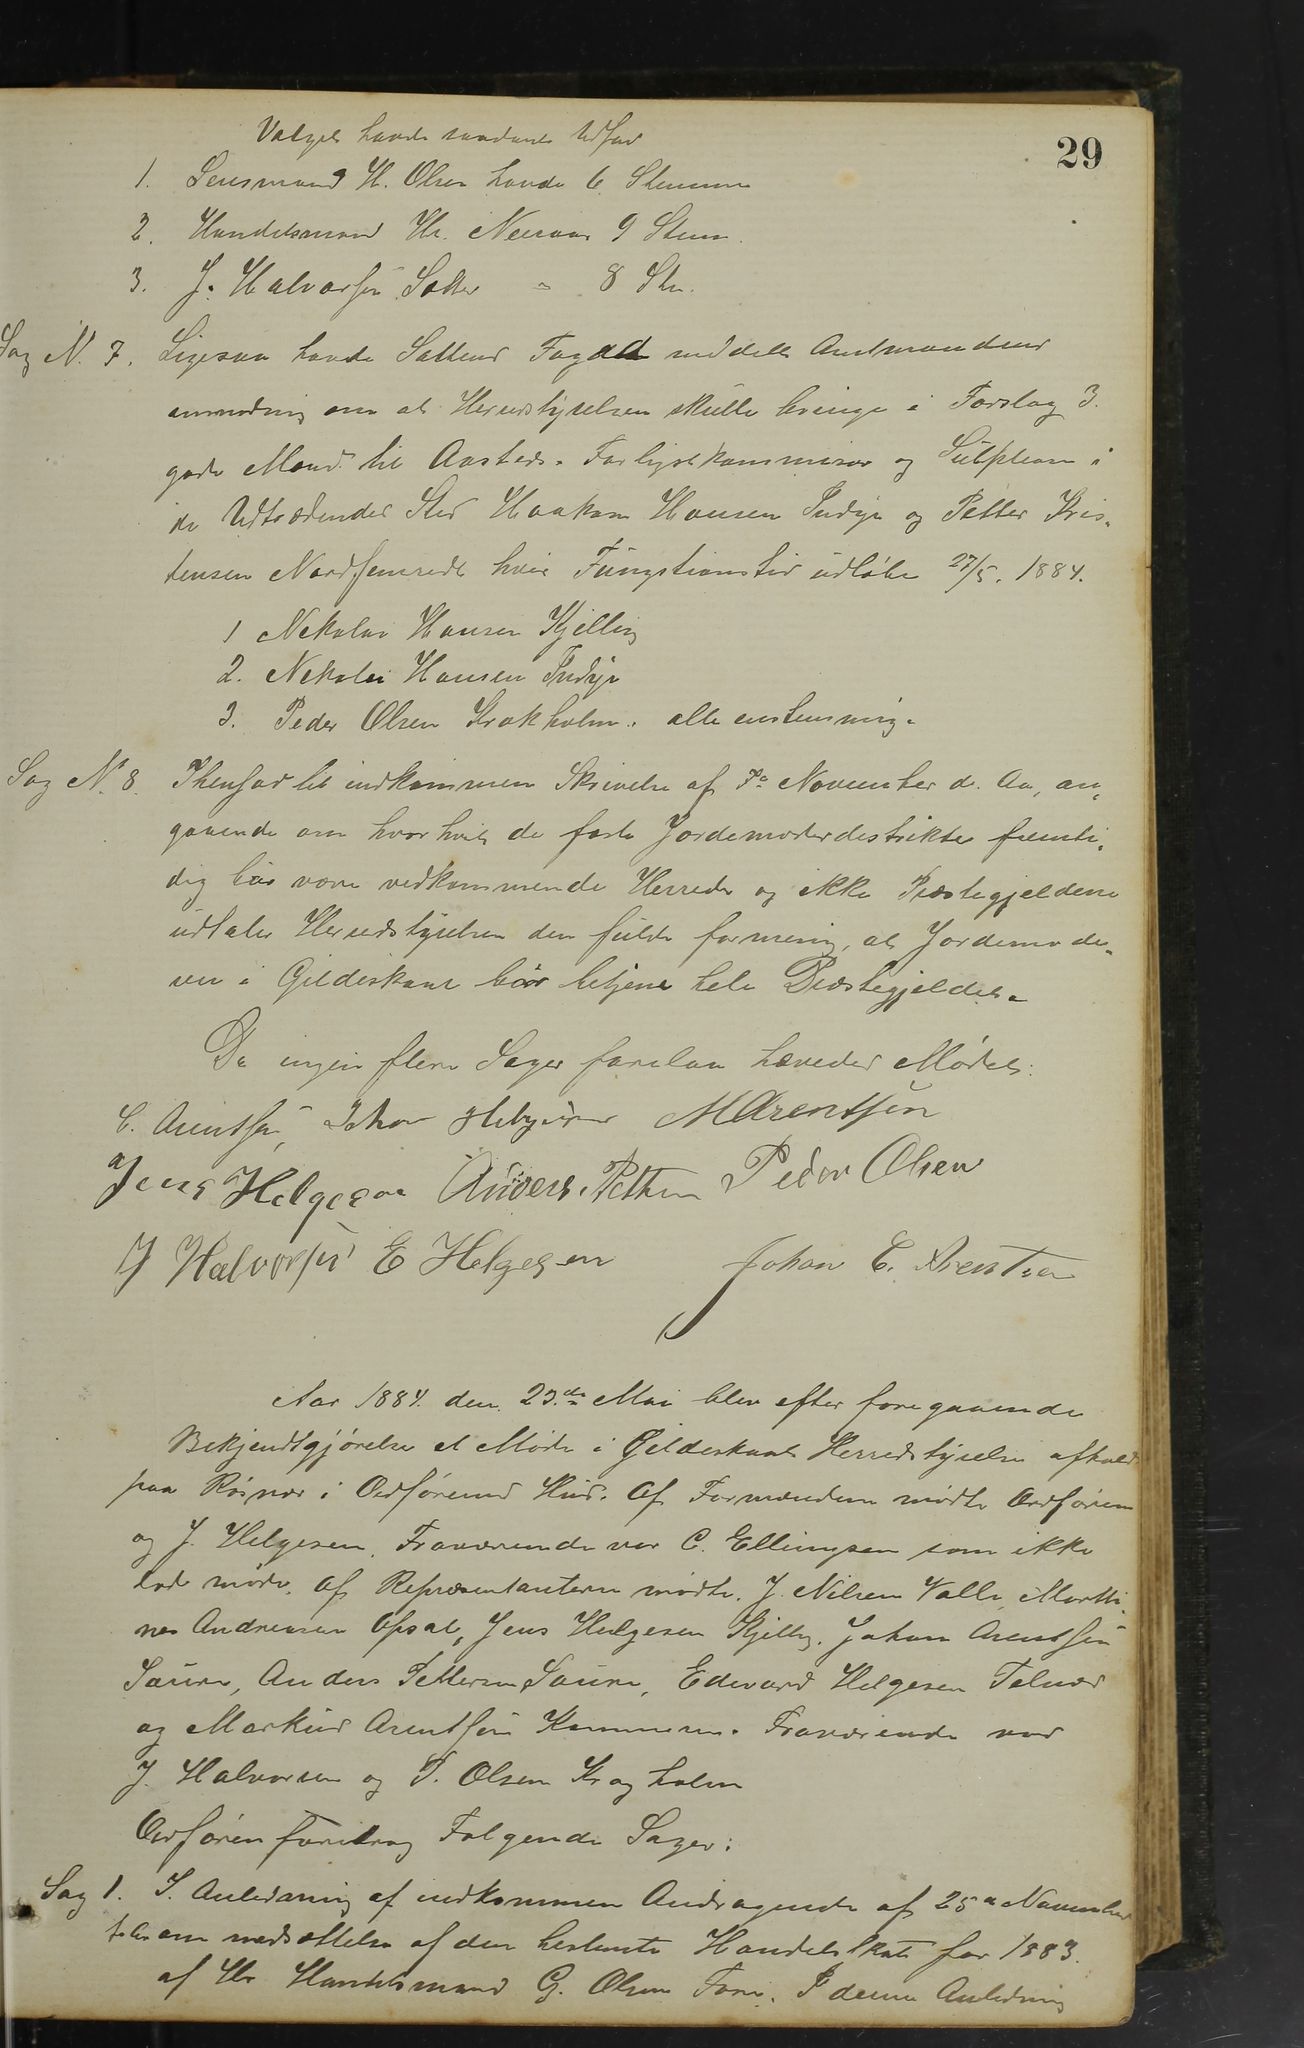 29
Valget havde saadant Udfal
1. Lensmand H. Olsen havde 6 Stemmer
2. Handelsmand Hr. 9 Stem.
3. J. Halvorsen Sætter " 8 Ste.
Sag N. 7. Ligesaa havde Saltens Fogd meddelt Amtmandens
anmodning om at Herredstyrelsen skulle bringe i Forslag 3.
gode Mænd til Aasteds-Forligelseskommisær og Supleant i
de Udtrædendes Sted Haakon Hansen Indyr og Petter Kris-
tensen hvis Fungtionstid udløber 27/5. 1884.
1 Nekolai Hansen Kjelling
2. Nekolai Hansen Indyr
3. Peder Olsen Krokholm. alle enstemmig.
Sag N. 8. Ihenhold til indkommen Skrivelse af 7de November d. Aa, an-
gaaende om hvorhvidt de faste Jordemoderdestrikter fremti-
dig bør være vedkommende Herreder og ikke Præstegjeldene
udtaler Herredstyrelsen den fulde formening, at Jordemode-
ren i Gildeskaal bør betjene hele Præstegjeldet.
Da ingen flere Sager forelaa hævedes Mødet.
C. Arentsen, Johan M Arentsen
Jens Helgesen Anders Pettersen Peder Olsen
J Halvorsen E Helgesen Johan C. Arentsen
Aar 1884. den 23.de Mai blev efter foregaaende
Bekjendtgjørelse et Møde i Gildeskaals Herredstyrelse afholdt
paa Røsnes i Ordførerens Hus. Af Formændene mødte Ordføreren
og J. Helgesen. Fraværende var C. Ellingsen som ikke
lod møde. Af Repræsentanterne mødte. J. Nilsen Valle, Marthi-
nes Andreasen Opsal, Jens Helgesen Kjelling. Johan Arentsen
Saura, Anders Pettersen Saura, Edevard Helgesen Telnes
og Markus Arentsen. Fraværende var
J. Halvorsen og P. Olsen Kragholm
Ordføreren foredrog Følgende Sager:
Sag 1. I. Anledning af indkommen Andragende af 25de November
om nedsættelse af den bestemte Handelskat for 1883.
af Hr Handelsmand G. Olsen Fore. I denne Anledning